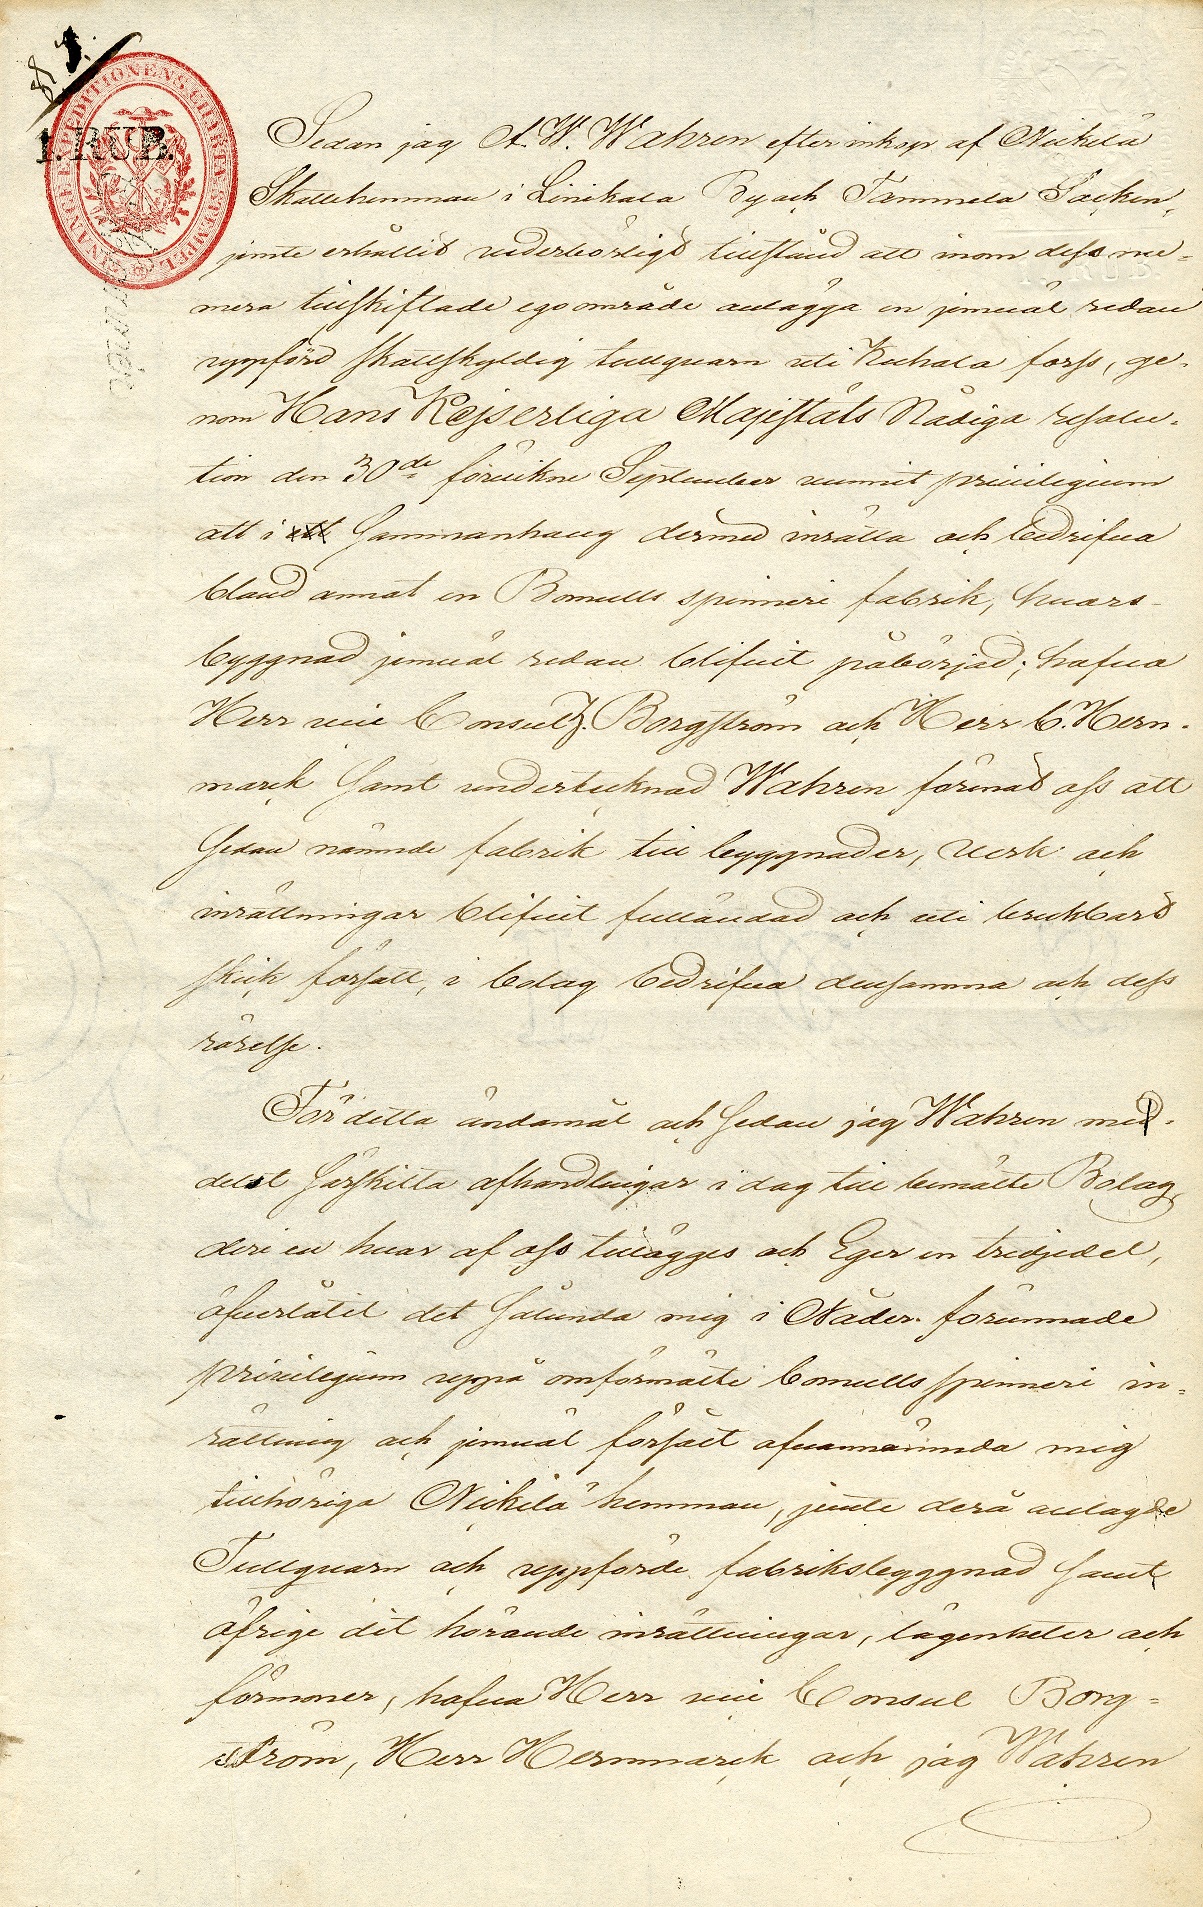 1. RUB.
FINANCE EXPEDITIONENS CHARTA STEMPEL
Sedan jag A. W. Wahren efter inköp af Nickilä
Skattehemman i Linikala By och Tammela Sacken,
jemte erhållit vederbörligt tillstånd att inom dess nu-
mera tillskiftade egoområde anlägga en jemväl redan
uppförd skattskyldig tullquarn uti Kuhala forss, ge-
nom Hans Kejserliga Majestäts Nådiga resolu-
tion den 30de förvikne September vunnit privilegium
att i sammanhang dermed inrätta och bedrifva
bland annat en Bomulls spinneri fabrik, hvars
byggnad jemväl redan blifvit påbörjad; hafva
Herr vice Consul Borgström och Herr C. Hern-
marck samt undertecknad Wahren förenat oss att
sedan nämnde fabrik till byggnader, verk och
inrättningar blifvit fulländad och uti brukbart
skick försatt, i bolag bedrifva densamma och dess
rörelse.
För detta ändamål och sedan jag Wahren med-
delst särskilta afhandlingar i dag till bemälte Bolag,
deri en hvar af oss tillägges och Eger en tredjedel,
öfverlåtit det sålunda mig i Nåder förunnade
privilegium uppå omförmälte bomulls spinneri in-
rättning och jemväl försålt ofvannämnda mig
tillhöriga Nickilä hemman, jemte derå anlagde
Tullquarn och uppförde fabriksbyggnad samt
öfrige dit hörande inrättningar, lägenheter och
förmoner, hafva Herr vice Consul Borg-
ström, Herr Hernmarck och jag Wahren